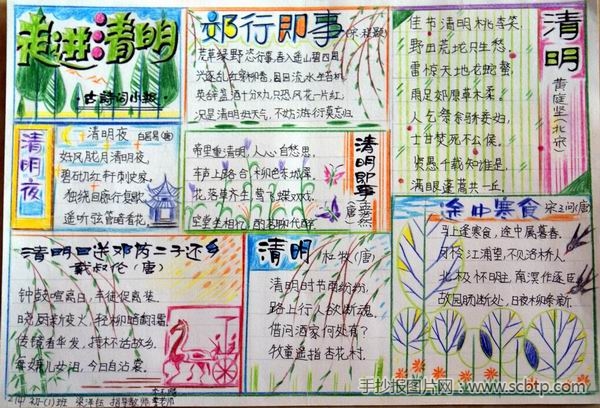 走进清明
·古诗词小报
郊行即事
(宋·程颢)
芳草绿野恣行事,春入遥山碧四围。
兴逐乱红穿柳巷,困临流水坐苔矶。
莫辞盏酒十分劝,只恐风花一片红。
况是清明好天气,不妨游衍莫忘归。
清明
黄庭坚(北宋)
佳节清明桃李笑,
野田荒地只生愁。
雷惊天地龙蛇蟄,
雨足郊原草木柔。
人乞祭余骄妾妇,
士甘焚死不公侯。
贤愚千载知谁是,
满眼蓬蒿共一丘。
清明夜
清明夜 白居易(唐)
好风胧月清明夜,
碧砌红轩刺史家。
独绕回廊行复歇,
遥听弦管暗看花。
清明即事
孟浩然(唐)
帝里重清明,人心自愁思。
车声上路合,柳色东城翠。
花落草齐生,莺飞蝶双戏。
空堂坐相忆,酌茗聊代醉。
途中寒食 宋之问(唐)
马上逢寒食,途中属暮春。
可怜江浦望,不见洛桥人。
北极怀明主,南溟作逐臣。
故园肠断处,日夜柳条新。
清明日送邓芮二子还乡
戴叔伦(唐)
钟鼓喧离日,车徒促夜装。
晓厨新变火,轻柳暗翻霜。
传镜看华发,持杯话故乡。
每嫌儿女泪,今日自沾裳。
清明 杜牧(唐)
清明时节雨纷纷,
路上行人欲断魂。
借问酒家何处有?
牧童遥指杏花村。
初一(1)班 梁泽钰 指导教师
手抄报图片网-www.scbtp.com